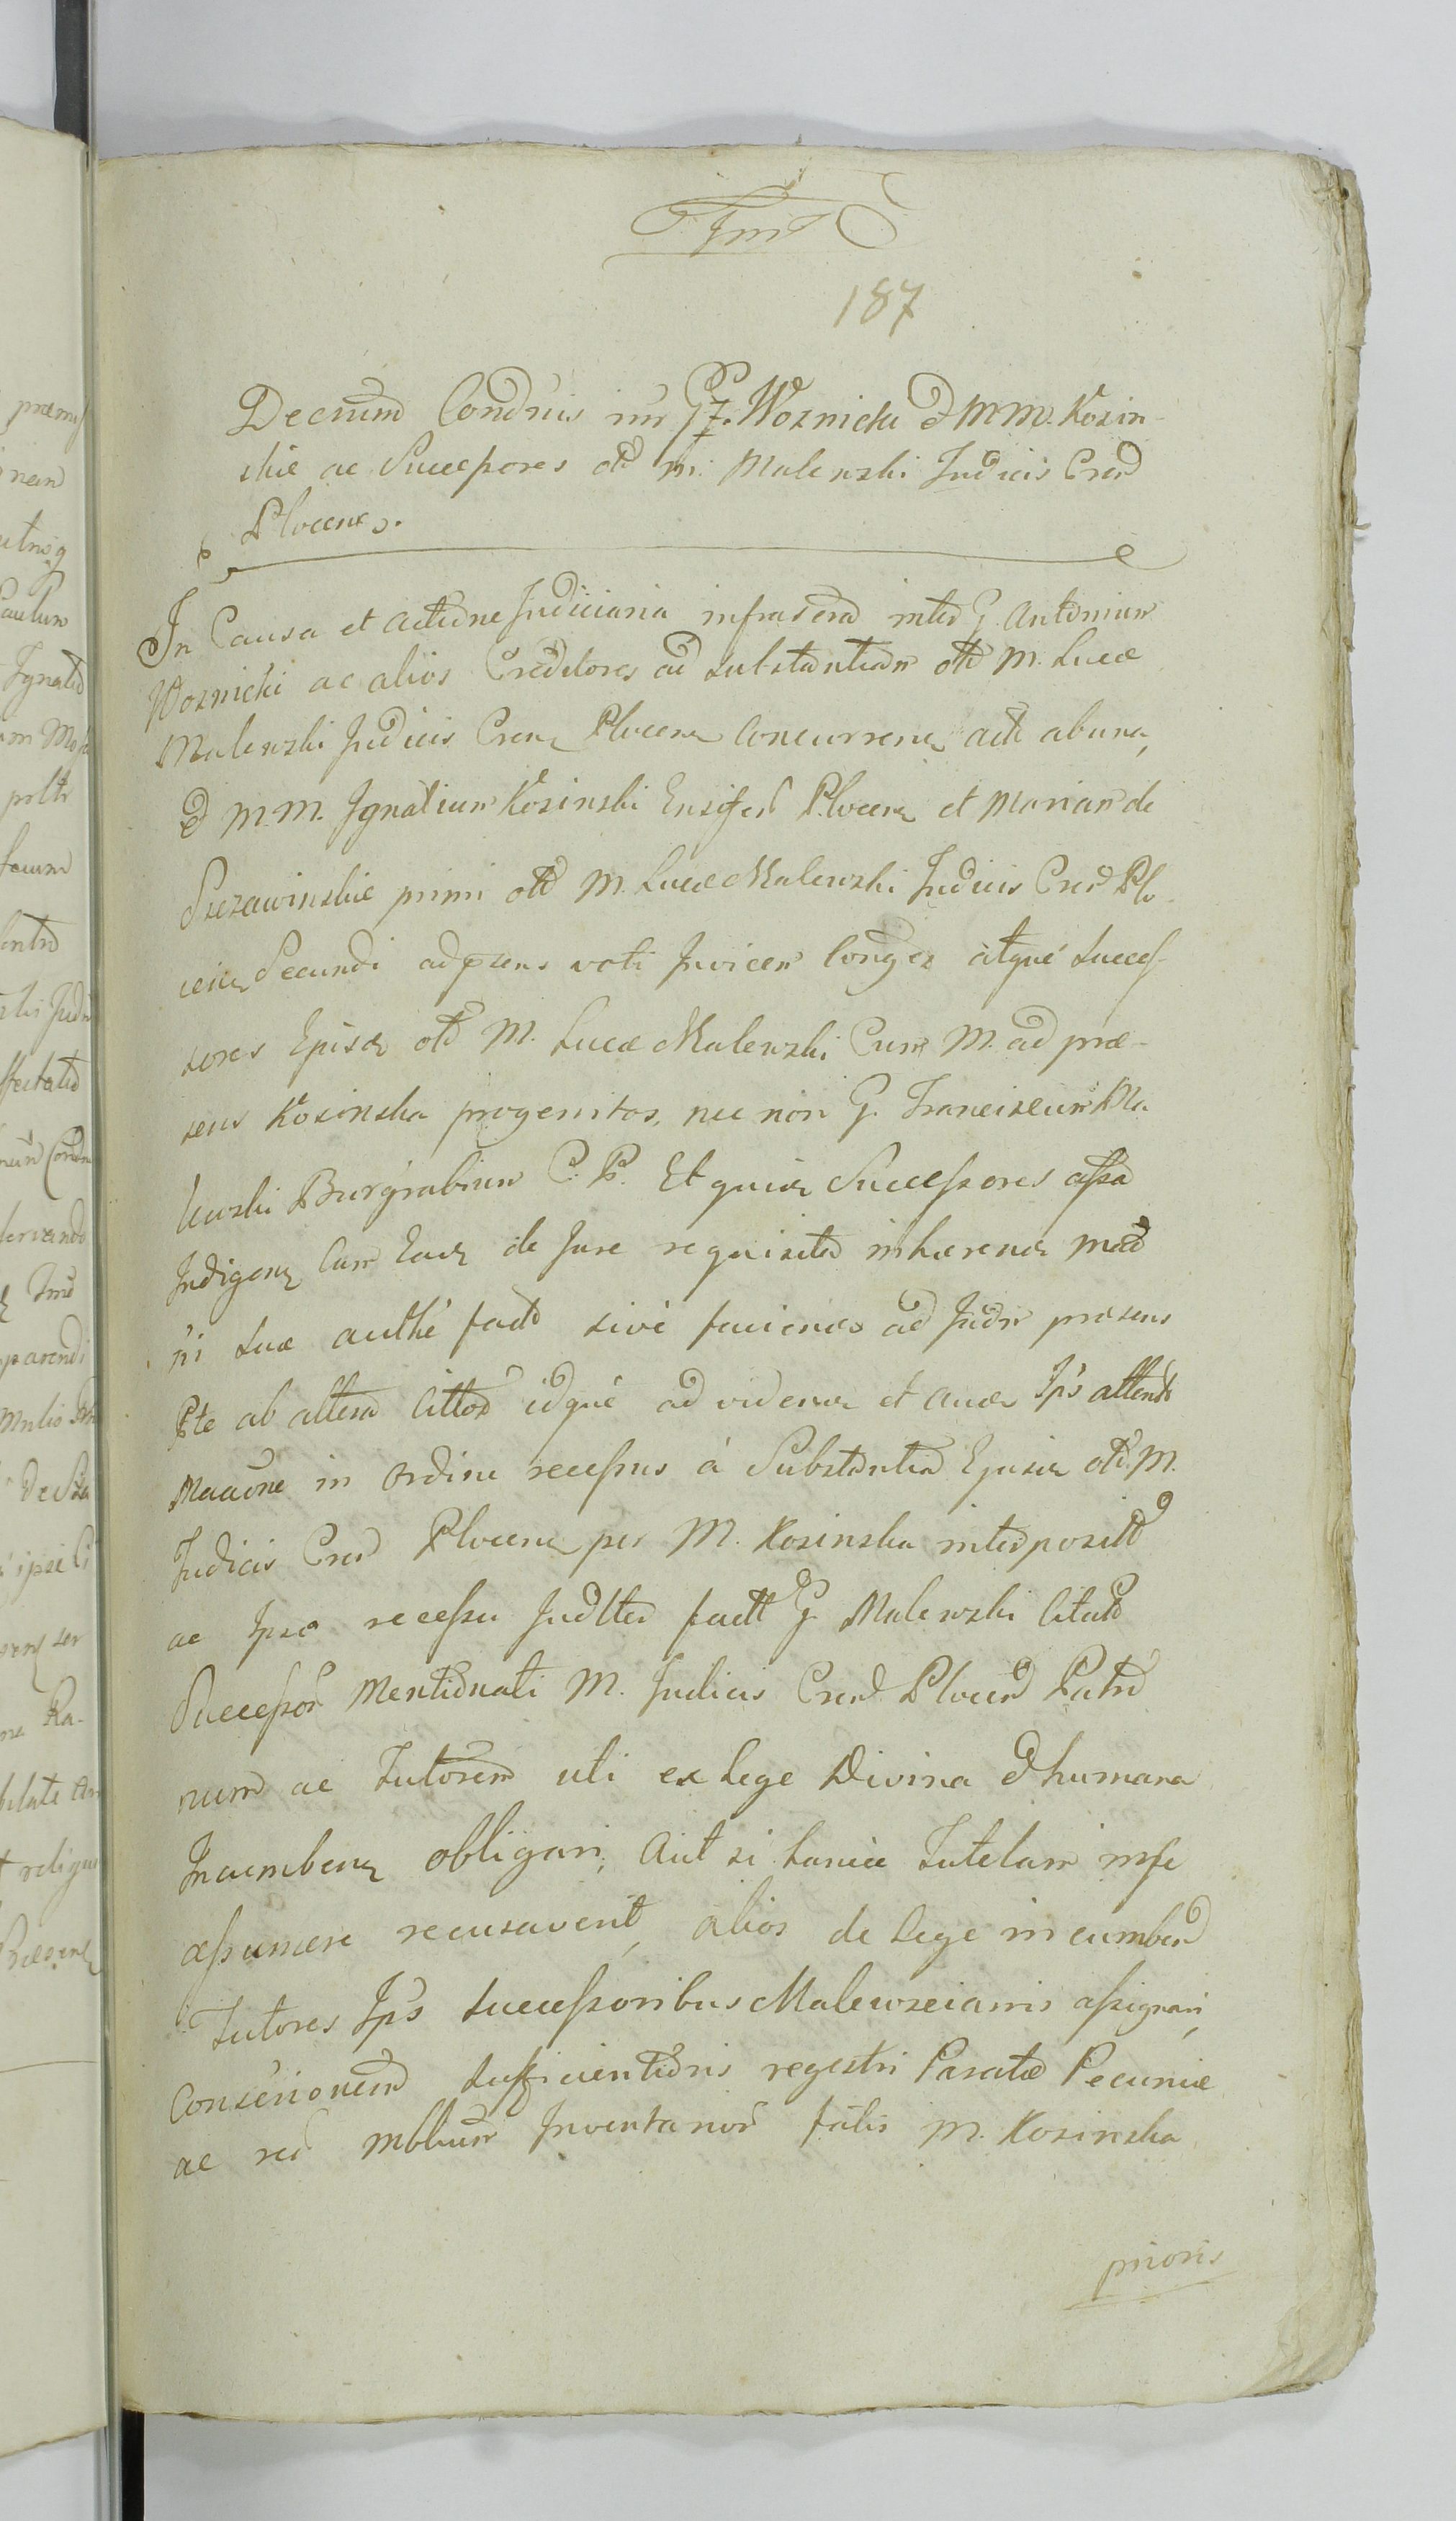 187
Decretum Condnis inr GG. Woznicki & MM. Kosin-
skie ac Successores otd M. Malewski Judicis Cred
Plocenes.
In Causa et Actione Judiciaria infrascrid inted G. Antonium
Woznicki ac alios Creditores ad substantiam otd M. Lucæ
Malewski Judicis Cren Plocen Concurren act abuna,
& M.M. Ignatium Kosinski Ensifer Plocen et Mariam de
Szczawinskie primi otd M. Lucæ Malewski Judicis Cred Plo-
cen Secundi adpræsens voti Invicem Conges atque Succes-
sores Ejusd otd M. Lucæ Malewski Cum M. ad præ-
sens Kosinska progenitos, nec non G. Franciscum Ma
lewski Burgrabium C. P. Et quide Successores assa
Indigen Cum Eand de Jure requisita inhæren mod
ni suæ authe facto sive faciendo ad Judm præsens
Pte ab altera Cittos idque ad viden et aud Ips attenta
in Ordine recessus à Substantia Ejusd otd M.
Judicis Cred Plocen per M. Kosinska intedposito
ac Ipso recessu Judlted fact G. Malewski Citatd
Successor Mentionati M. Judicis Cred Plocend Patrd
num ac Tutorem uti ex Lege Divina & humana
Incumben obligari, Aut si hancce Tutelam in se
assumere recusaverit, alios de Lege incumben
Tutores Ips Successoribus Malewscianis assignari,
sufficientioris regestri Paratæ Pecuniæ
ac red mblium Inventarior fatis M. Kosinska
prioris